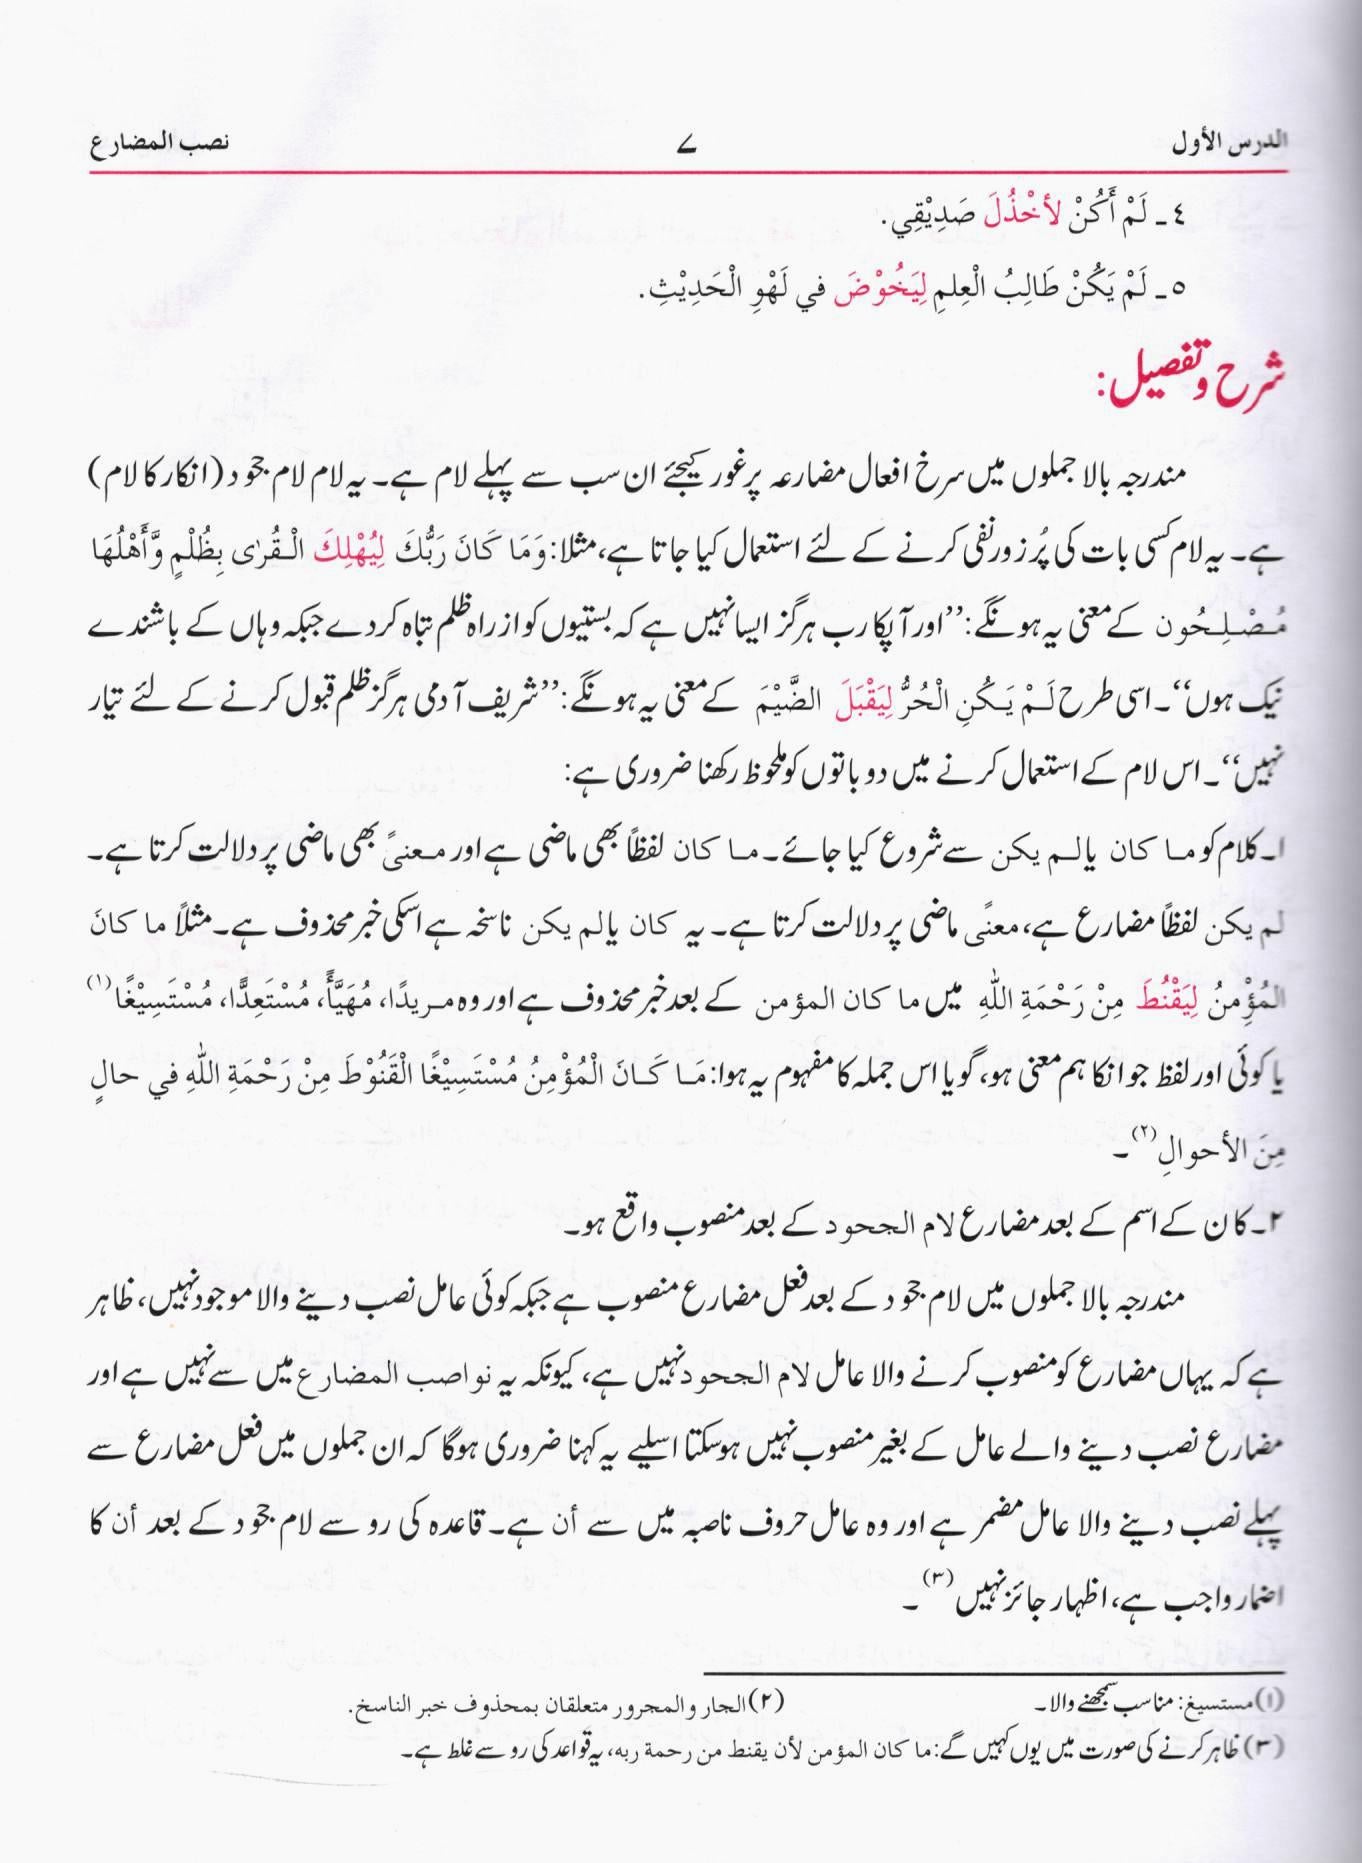 الدرس الأول ۷ نصب المضارع
٤ ـ لَمْ أَكُنْ لأَخْذُلَ صَدِيْقِي.
٥ ـ لَمْ يَكُنْ طَالِبُ الْعِلمِ لِيَخُوْضَ في لَهْوِ الْحَدِيْثِ.
شرح و تفصیل:
مندرجہ بالا جملوں میں سرخ افعال مضارعہ پر غور کیجئے ان سب سے پہلے لام ہے۔ یہ لام لام جحود (انکار کا لام)
ہے۔ یہ لام کسی بات کی پُر زور نفی کرنے کے لئے استعمال کیا جاتا ہے، مثلا: وَمَا كَانَ رَبُّكَ لِيُهْلِكَ الْقُرٰى بِظُلْمٍ وَّأَهْلُهَا
مُصْلِحُون کے معنی یہ ہونگے: ’’اور آپکا رب ہرگز ایسا نہیں ہے کہ بستیوں کو از راہ ظلم تباہ کر دے جبکہ وہاں کے باشندے
نیک ہوں‘‘۔ اسی طرح لَمْ يَكُنِ الْحُرُّ لِيَقْبَلَ الضَّيْمَ کے معنی یہ ہونگے: ’’شریف آدمی ہرگز ظلم قبول کرنے کے لئے تیار
نہیں‘‘۔ اس لام کے استعمال کرنے میں دو باتوں کو ملحوظ رکھنا ضروری ہے:
۱۔ کلام کو ما کان یا لم یکن سے شروع کیا جائے۔ ما کان لفظاً بھی ماضی ہے اور معنیً بھی ماضی پر دلالت کرتا ہے۔
لم یکن لفظاً مضارع ہے، معنًی ماضی پر دلالت کرتا ہے۔ یہ کان یا لم یکن ناسخہ ہے اسکی خبر محذوف ہے۔ مثلاً ما كانَ
المُؤْمنُ لِيَقْنُطَ مِنْ رَحْمَةِ اللهِ میں ما كان المؤمن کے بعد خبر محذوف ہے اور وہ مريدًا، مُهَيَّأً، مُسْتَعِدًّا، مُسْتَسِيْغًا(۱)
یا کوئی اور لفظ جو انکا ہم معنی ہو، گویا اس جملہ کا مفہوم یہ ہوا: مَا كَانَ الْمُؤْمِنُ مُسْتَسِيْغًا الْقَنُوْطَ مِنْ رَحْمَةِ اللهِ في حالٍ
مِنَ الأحوالِ(۲)۔
۲۔ کان کے اسم کے بعد مضارع لام الجحود کے بعد منصوب واقع ہو۔
مندرجہ بالا جملوں میں لام جحود کے بعد فعل مضارع منصوب ہے جبکہ کوئی عامل نصب دینے والا موجود نہیں، ظاہر
ہے کہ یہاں مضارع کو منصوب کرنے والا عامل لام الجحود نہیں ہے، کیونکہ یہ نواصب المضارع میں سے نہیں ہے اور
مضارع نصب دینے والے عامل کے بغیر منصوب نہیں ہوسکتا اسلیے یہ کہنا ضروری ہوگا کہ ان جملوں میں فعل مضارع سے
پہلے نصب دینے والا عامل مضمر ہے اور وہ عامل حروف ناصبہ میں سے أن ہے۔ قاعدہ کی رو سے لام جحود کے بعد أن کا
اضمار واجب ہے، اظہار جائز نہیں(۳)۔
(۱) مستسیغ: مناسب سمجھنے والا۔ (۲) الجار والمجرور متعلقان بمحذوف خبر الناسخ.
(۳) ظاہر کرنے کی صورت میں یوں کہیں گے: ما كان المؤمن لأن يقنط من رحمة ربه، یہ قواعد کی رو سے غلط ہے۔